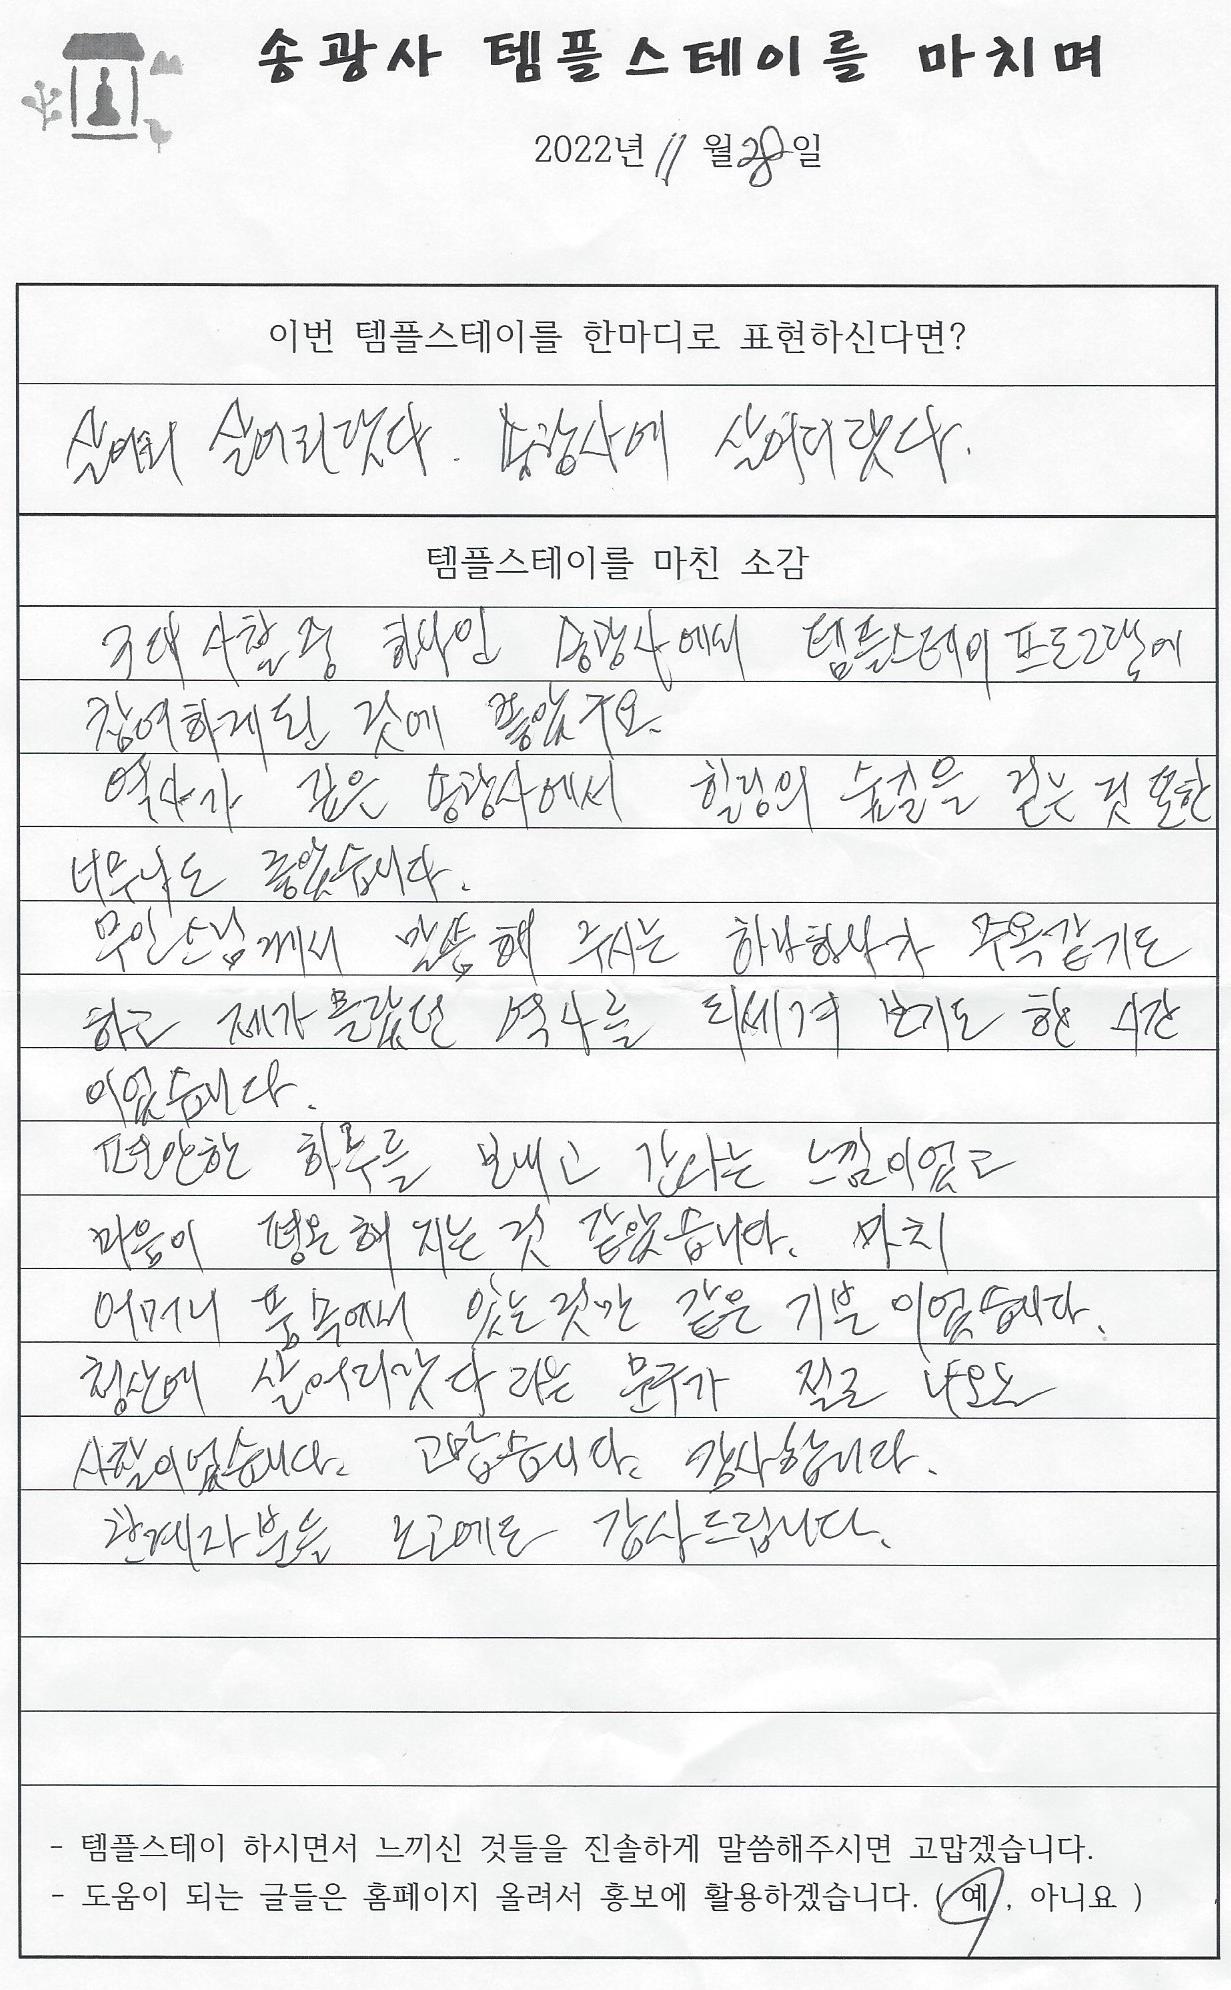 송광사 템플스테이를 마치며
2022년 11월 28일
이번 템플스테이를 한마디로 표현하신다면?
살어리 살어리랏다. 송광사에 살어리랏다.
템플스테이를 마친 소감
3대 사찰 중 하나인 송광사에서 템플스테이 프로그램에
참여하게 된 것에 좋았구요.
역사가 깊은 송광사에서 힐링의 숲길을 걷는 것 또한
너무나도 좋았습니다.
무인스님께서 말씀해 주시는 하나하나가 주옥같기도
하고 제가 몰랐던 역사를 되세겨 보기도 한 시간
이었습니다.
편안한 하루를 보내고 간다는 느낌이었고
마음이 평온해 지는 것 같았습니다. 마치
어머니 품속에서 있는 것만 같은 기분이었습니다.
청산에 살어리랏다 라는 문구가 절로 나오는
사찰이었습니다. 고맙습니다. 감사합니다.
관계자분들 노고에도 감사드립니다.
- 템플스테이 하시면서 느끼신 것들을 진솔하게 말씀해주시면 고맙겠습니다.
- 도움이 되는 글들은 홈페이지 올려서 홍보에 활용하겠습니다. ( 예 , 아니요 )